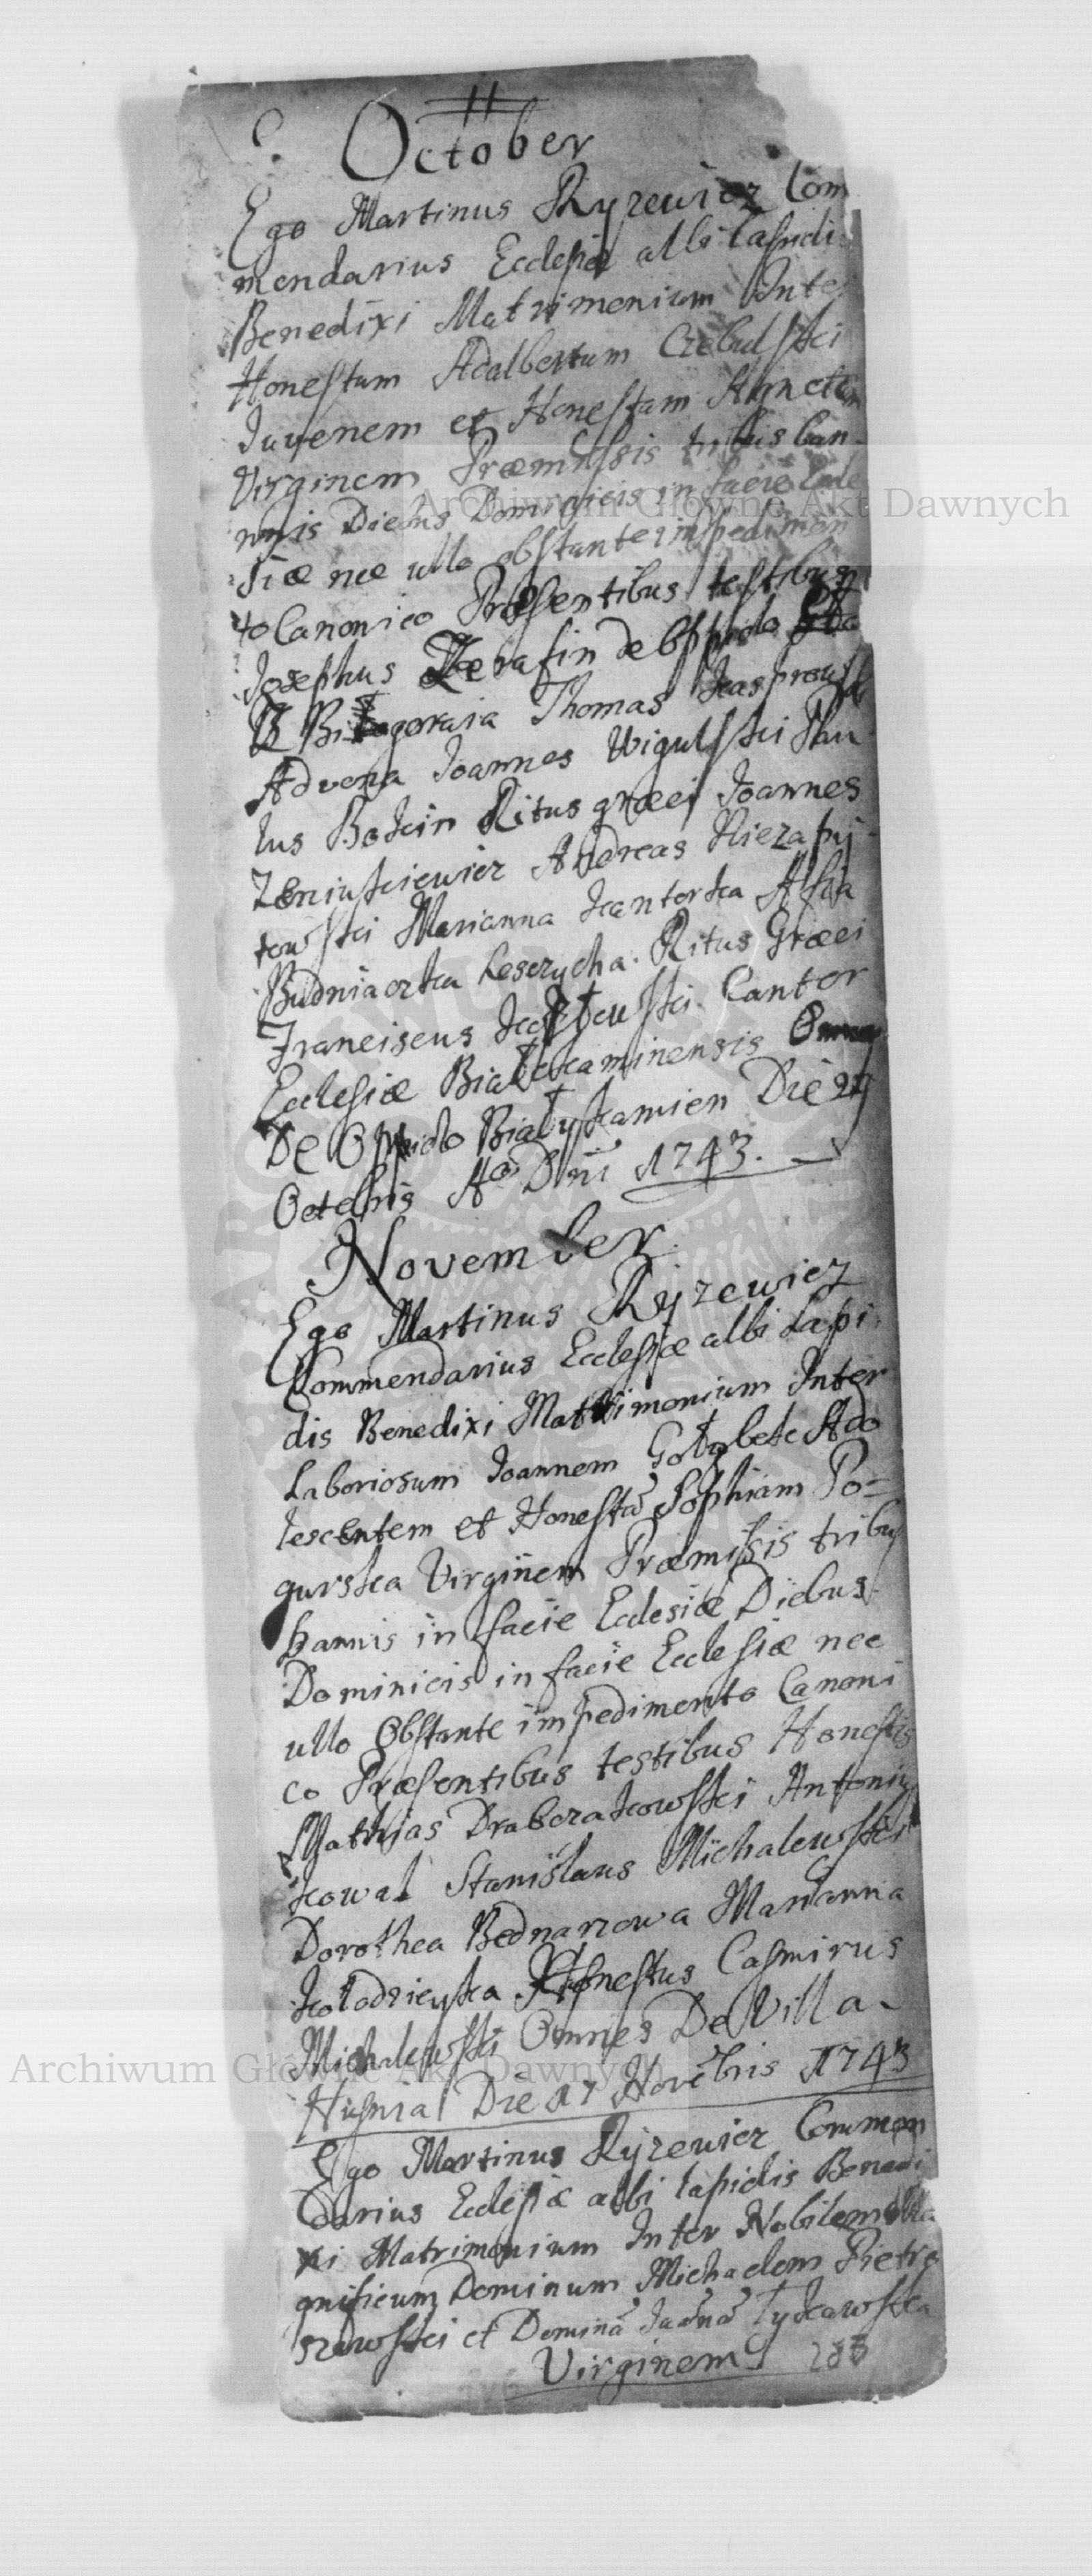 October
Ego Martinus Ryzewicz Com
mendarius Ecclesiæ albi lapidi
Benedixi Matrimonium Inte
Honestum Adalbertum Czebulski
Juvenem et Honestam Agnetem
Virginem Præmissis tribus ban
nnis Diebus Dominicis in facie Eccle
siæ nec ullo obstante impedimen
to Canonico Præsentibus testibus
Josephus Zerafin de Oppido
Thomas
Advena Joannes Wigulski Pau
lus Botcin Ritus græci Joannes
Zeniukiewicz Andreas Niezapy
towski Marianna Kantorka
Budniaczka Leszczycha. Ritus Græci
Franciscus Cantor
Ecclesiæ Białokaminensis
De Oppido Białykamien Die 27
Octobris Aō Dñi 1743.
November
Ego Martinus Ryzewicz
Commendarius Ecclesiæ albi Lapi
dis Benedixi Matrimonium Inter
Laboriosum Joannem Gołąbek Ado
lescentem et Honestã Sophiam Po=
gurska Virginem Præmissis tribus
bannis in facie Ecclesiæ Diebus
Dominicis in facie Ecclesiæ nec
ullo Obstante impedimento Canoni
co Præsentibus testibus Honestis
Mathias Drabczakowski Antonius
Kowal Stanislaus Michalewski
Dorothea Bednarzowa Marianna
Kołodzieyka Honestus Casmirus
Michalewski Omnes De Villa
Die 17 Novēbris 1743
Ego Martinus Ryzewicz Commen
darius Ecclesiæ albi lapidis Benedi
xi Matrimonium Inter Nobilem Ma
gnificum Dominum Michaelem Pietra
szewski et Dominã
Virginem
283
Archiwum Główne Akt Dawnych
Archiwum Główne Akt Dawnych